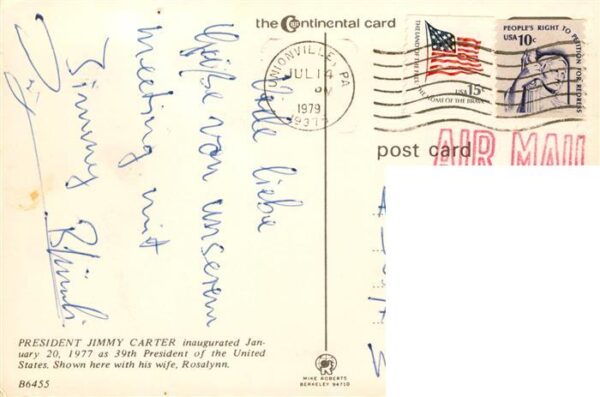 the Continental card
UNIONVILLE, PA
JUL 14
PM
1979
19375
THE LAND OF THE FREE, THE HOME OF THE BRAVE
USA 15c
PEOPLE'S RIGHT TO PETITION FOR REDRESS
USA 10c
post card
AIR MAIL
liebe
Grüße von unserem
meeting mit
Jimmy
PRESIDENT JIMMY CARTER inaugurated Jan-
uary 20, 1977 as 39th President of the United
States. Shown here with his wife, Rosalynn.
B6455
MIKE ROBERTS
BERKELEY 94710